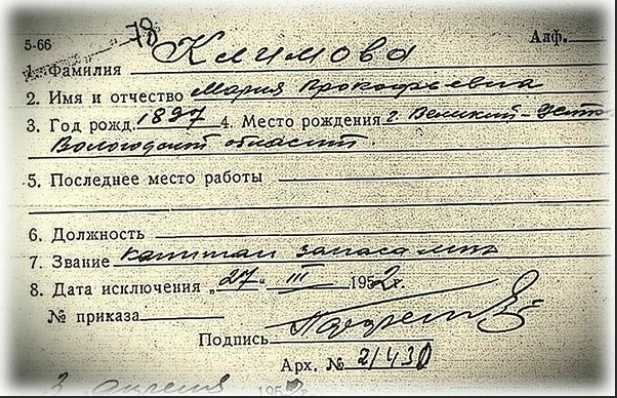 5-66 78 Алф.
1. Фамилия Климова
2. Имя и отчество Мария Прокофьевна
3. Год рожд. 1897 4. Место рождения г. Великий-Устюг
Вологодской области.
5. Последнее место работы
6. Должность
7. Звание капитан запаса
8. Дата исключения „27" III 1952г.
№ приказа
Подпись
Арх. № 21430
3 апреля 1952